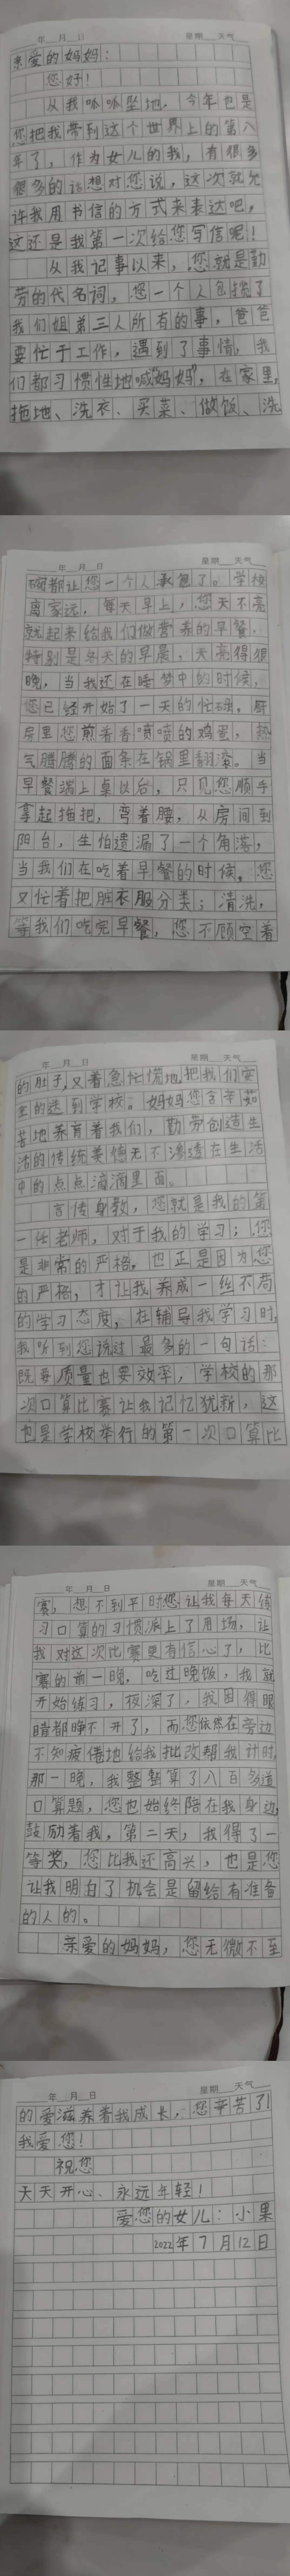 年 月 日 星期 天气
亲爱的妈妈：
您好！
从我呱呱坠地，今年已是
您把我带到这个世界上的第八
年了，作为女儿的我，有很多
很多的话想对您说，这次就允
许我用书信的方式来表达吧，
这还是我第一次给您写信呢！
从我记事以来，您就是勤
劳的代名词，您一个人包揽了
我们姐弟三人所有的事，爸爸
要忙于工作，遇到了事情，我
们都习惯性地喊"妈妈"，在家里，
拖地、洗衣、买菜、做饭、洗
年 月 日 星期 天气
碗都让您一个人承包了。学校
离家远，每天早上，您天不亮
就起来给我们做营养的早餐，
特别是冬天的早晨，天亮得很
晚，当我还在睡梦中的时候，
您已经开始了一天的忙碌，厨
房里您煎着香喷喷的鸡蛋，热
气腾腾的面条在锅里翻滚。当
早餐端上桌以后，只见您顺手
拿起拖把，弯着腰，从房间到
阳台，生怕遗漏了一个角落，
当我们在吃着早餐的时候，您
又忙着把脏衣服分类；清洗，
等我们吃完早餐，您不顾空着
年 月 日 星期 天气
的肚子，又着急忙慌地把我们安
全的送到学校。妈妈您含辛茹
苦地养育着我们，勤劳创造生
活的传统美德无不渗透在生活
中的点点滴滴里面。
言传身教，您就是我的第
一任老师，对于我的学习；您
是非常的严格，也正是因为您
的严格，才让我养成一丝不苟
的学习态度，在辅导我学习时，
我听到您说过最多的一句话：
既要质量也要效率，学校的那
次口算比赛让我记忆犹新，这
也是学校举行的第一次口算比
年 月 日 星期 天气
赛，想不到平时您让我每天练
习口算的习惯派上了用场，让
我对这次比赛更有信心了，比
赛的前一晚，吃过晚饭，我就
开始练习，夜深了，我困得眼
睛都睁不开了，而您依然在旁边
不知疲倦地给我批改帮我计时，
那一晚，我整整算了八百多道
口算题，您也始终陪在我身边，
鼓励着我，第二天，我得了一
等奖，您比我还高兴，也是您
让我明白了机会是留给有准备
的人的。
亲爱的妈妈，您无微不至
年 月 日 星期 天气
的爱滋养着我成长，您辛苦了！
我爱您！
祝您
天天开心、永远年轻！
爱您的女儿：小果
2022年7月12日